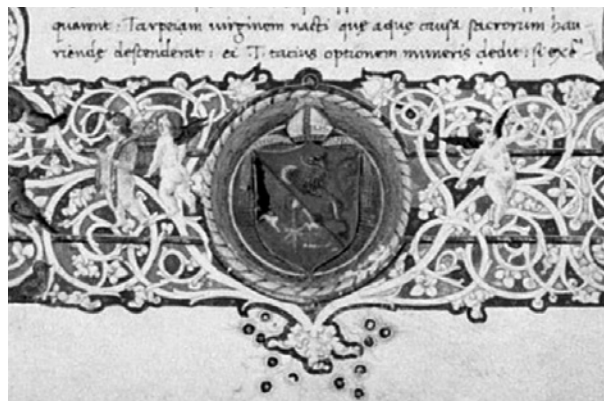 quarent: Tarpeiam uirginem nacti que aque causa sacrorum hau
riende descenderat: ei T. tacius optionem muneris dedit: si exē